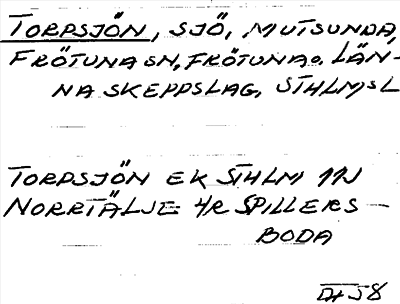 TORPSJÖN, SJÖ, MUTSUNDA,
FRÖTUNA SN, FRÖTUNA o. LÄN-
NA SKEPPSLAG, STHLMS L
TORPSJÖN EK STHLM 11J
NORRTÄLJE 4R SPILLERS-
BODA